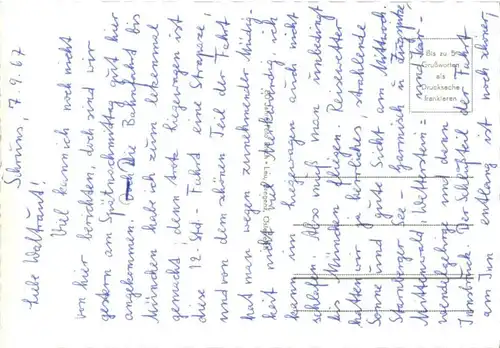 Schruns, 7.9.67
Liebe Waltraut!
Viel kann ich noch nicht
von hier berichten, doch sind wir
gestern am Spätnachmittag gut hier
angekommen. Die Bahnfahrt bis
München habe ich zum letztenmal
gemacht, denn trotz Liegewagen ist
diese 12-Std.-Fahrt eine Strapaze,
und von dem schönen Teil der Fahrt
hat man wegen zunehmender Müdig-
keit nicht viel. Merkwürdig, ich
kann im Liegewagen auch nicht
schlafen. Also muß man unbedingt
bis München fliegen. Reisewetter
hatten wir ja herrliches, strahlende
Sonne und gute Sicht am Mittwoch.
Starnberger See - Garmisch u. Zugspitze
Mittenwald, Wetterstein- und Kar-
wendelgebirge und dann
Innsbruck. Der Schlußteil der Fahrt
am Inn entlang ist noch schöner,
Bis zu 5
Grußworten
als
Drucksache
frankieren